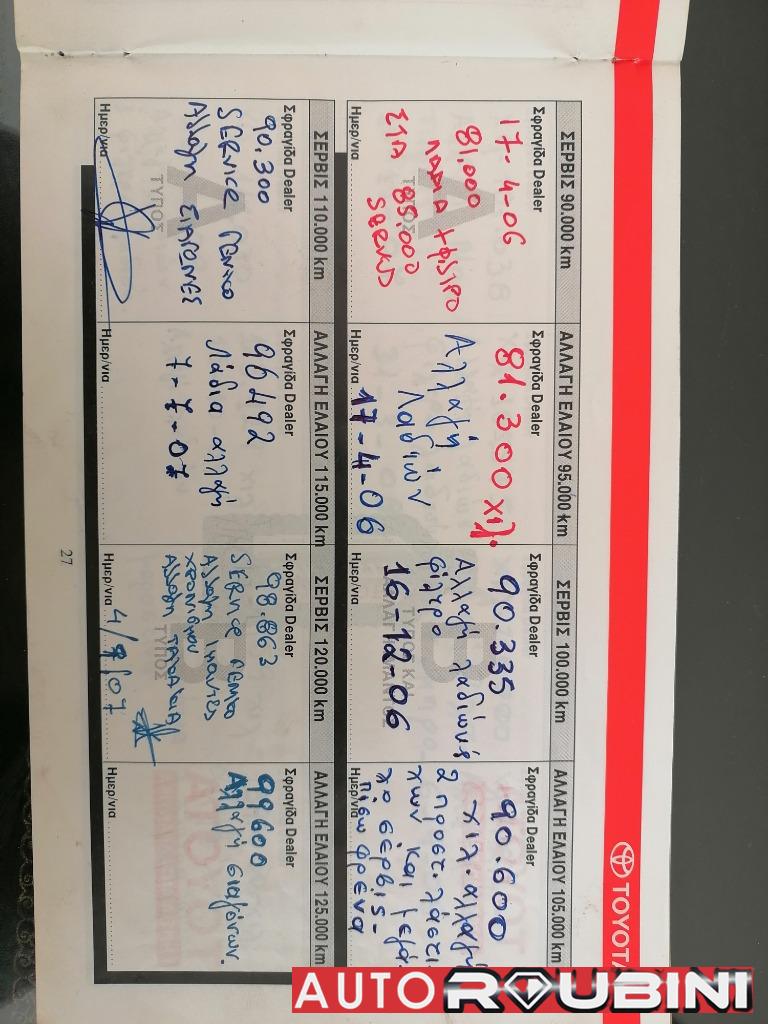 TOYOTA
ΣΕΡΒΙΣ 90.000 km
Σφραγίδα Dealer
17-4-06
81.000
ΛΑΔΙΑ + ΦΙΛΤΡΟ
ΣΤΑ 85.000
Ημερ/νια
ΑΛΛΑΓΗ ΕΛΑΙΟΥ 95.000 km
Σφραγίδα Dealer
81.300 χιλ.
Αλλαγή
Λαδιών
Ημερ/νια 17-4-06
ΣΕΡΒΙΣ 100.000 km
Σφραγίδα Dealer
90.335
Αλλαγή λαδιών
φίλτρο
Ημερ/νια 16-12-06
ΑΛΛΑΓΗ ΕΛΑΙΟΥ 105.000 km
Σφραγίδα Dealer
90.600
χιλ. αλλαγή
2 προστ. λάστι-
χων και μεγά-
χο σέρβις-
πίσω φρένα
Ημερ/νια
ΣΕΡΒΙΣ 110.000 km
Σφραγίδα Dealer
90.300
SERVICE ΓΕΝΙΚΟ
Αλλαγη ΣΙΑΓΩΝΕΣ
Ημερ/νια
ΑΛΛΑΓΗ ΕΛΑΙΟΥ 115.000 km
Σφραγίδα Dealer
96492
Λάδια αλλαγή
7-7-07
Ημερ/νια
ΣΕΡΒΙΣ 120.000 km
Σφραγίδα Dealer
98.863
Αλλαγη ιμαντες
χρονισμου
Αλλαγη
Ημερ/νια 4/9/07
ΑΛΛΑΓΗ ΕΛΑΙΟΥ 125.000 km
Σφραγίδα Dealer
99600
Αλλαγή σιαγόνων.
Ημερ/νια
27
AUTO ROUBINI